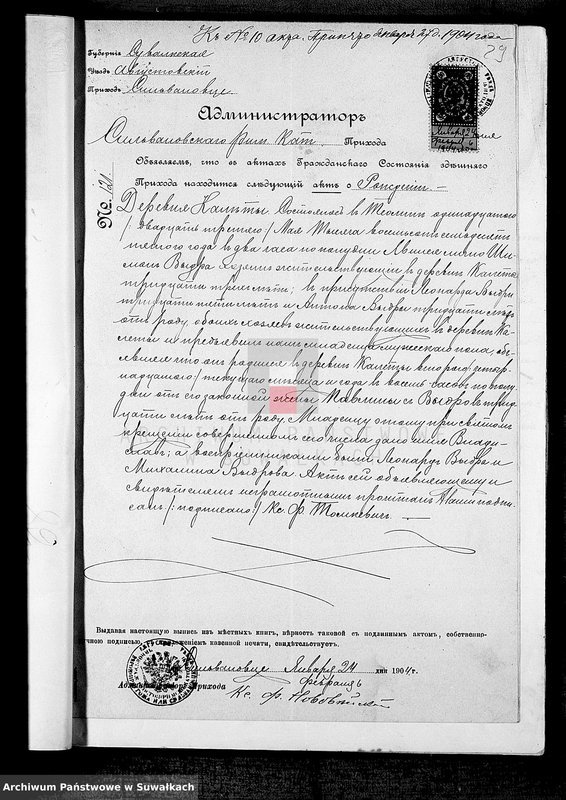 Къ № 10 акта. Принято января 27 д. 1904 года
29
Губернія Сувалкская
Уѣздъ Августовскій
Приходъ Сильвановце.
Администраторъ
Сильвановскаго Рим. Кат. Прихода
Объявляемъ, что въ актахъ Гражданскаго Состоянія здѣшняго
Прихода находится слѣдующій актъ о Рожденіи
№ 121.
Деревня Калеты. Состоялось въ
двадцать третьяго/ Мая тысяча восемьсотъ семьдесятъ
года въ два часа по полудни. Явился лично Ши-
монъ Выдра жительствующій въ деревнѣ Калеты
тридцати трехъ лѣтъ; въ присутствіи Леонарда Выдры
тридцати пяти лѣтъ и Антона Выдры тридцати лѣтъ
отъ роду, обоихъ жительствующихъ въ деревнѣ Ка-
леты и предъявилъ намъ младенца мужескаго пола, объ-
являя что онъ родился въ деревнѣ Калеты
текущаго мѣсяца и года въ восемь часовъ по полу-
дни отъ его законной жены Павлины съ Выдровъ трид-
цати лѣтъ отъ роду. Младенцу этому при святомъ
крещеніи совершенномъ сего числа дано имя Влади-
славъ, а воспріемниками были Леонардъ Выдра и
Михалина Выдрова. Актъ сей объявляющему и
свидѣтелямъ неграмотнымъ прочитанъ, Нами подпи-
санъ /:подписано:/ Кс. Ф. Томкевичъ.
Выдавая настоящую выпись изъ мѣстныхъ книгъ, вѣрность таковой съ подлиннымъ актомъ, собственно-
ручною подписью, приложеніемъ казенной печати, свидѣтельствуетъ.
Сильвановце Января 24 дня 1904 г.
Февраля 6
Администраторъ Прихода
Кс. Ф.
Archiwum Państwowe w Suwałkach